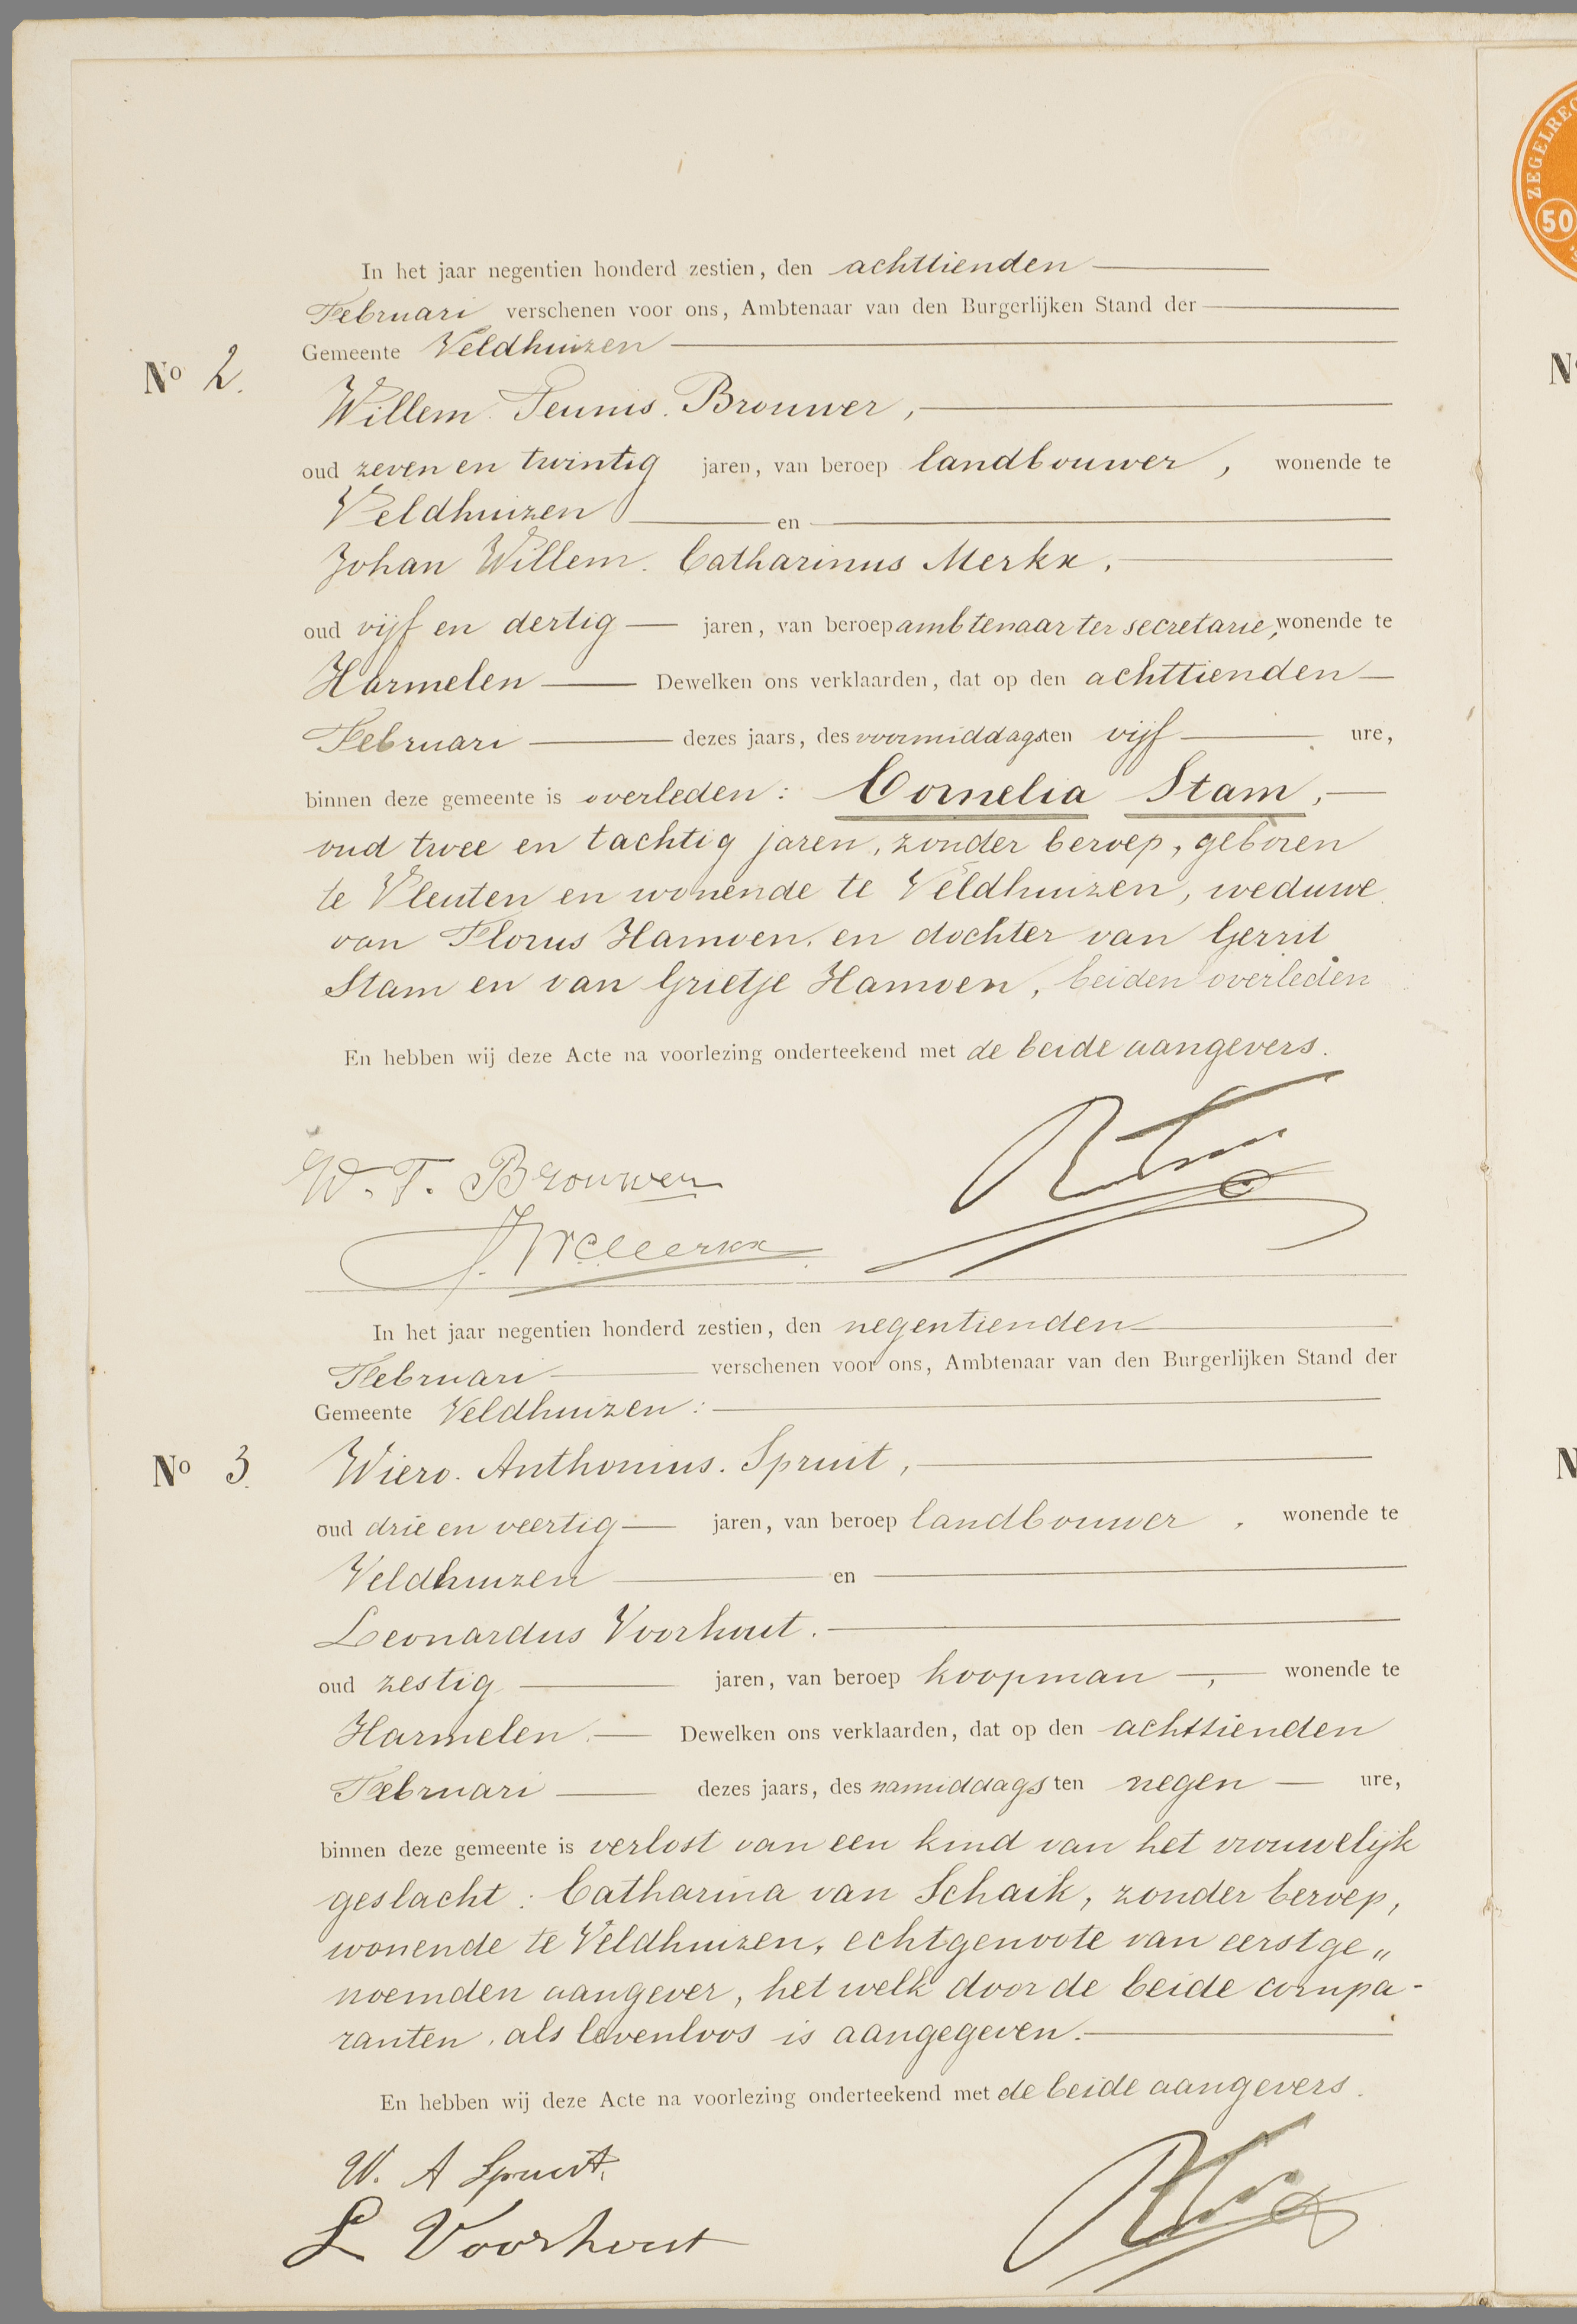 ZEGELREC
50
In het jaar negentien honderd zestien, den achttienden
Februari verschenen voor ons, Ambtenaar van den Burgerlijken Stand der
Gemeente Veldhuizen
No 2.
Willem Teunis. Brouwer,
oud zeven en twintig jaren, van beroep landbouwer, wonende te
Veldhuizen en
Johan Willem. Catharinus Merkx.
oud vijf en dertig jaren, van beroep ambtenaar ter secretarie, wonende te
Harmelen Dewelken ons verklaarden, dat op den achttienden
Februari dezes jaars, des voormiddags ten vijf ure,
binnen deze gemeente is overleden: Cornelia Stam,
oud twee en tachtig jaren, zonder beroep, geboren
te Vleuten en wonende te Veldhuizen, weduwe
van Florus Hamoen, en dochter van Gerrit
Stam en van Grietje Hamoen, beiden overleden
En hebben wij deze Acte na voorlezing onderteekend met de beide aangevers.
W. T. Brouwer
J.W.C. Merkx
In het jaar negentien honderd zestien, den negentienden
Februari verschenen voor ons, Ambtenaar van den Burgerlijken Stand der
Gemeente Veldhuizen:
No 3.
Wiero. Anthonius. Spruit,
oud drie en veertig jaren, van beroep landbouwer, wonende te
Veldhuizen en
Leonardus Voorhout.
oud zestig jaren, van beroep koopman, wonende te
Harmelen. Dewelken ons verklaarden, dat op den achttienden
Februari dezes jaars, des namiddags ten negen ure,
binnen deze gemeente is verlost van een kind van het vrouwelijk
geslacht: Catharina van Schaik, zonder beroep,
wonende te Veldhuizen, echtgenoote van eerstge„
noemden aangever, het welk door de beide compa-
ranten, als levenloos is aangegeven.
En hebben wij deze Acte na voorlezing onderteekend met de beide aangevers.
W. A Spruit.
L Voorhout